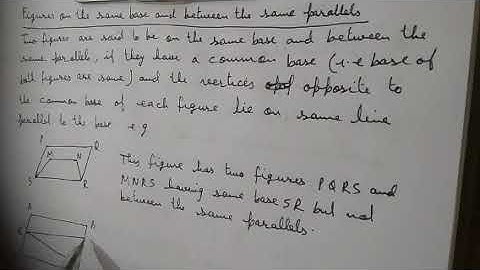 Figures on the same base and between the same parallels
Two figures are said to be on the same base and between the
same parallels, if they have a common base (i.e base of
both figures are same) and the vertices opposite to
the common base of each figure lie on same line
parallel to the base e.g
P Q
M N
S R
This figure has two figures PQRS and
MNRS having same base SR but not
between the same parallels.
A